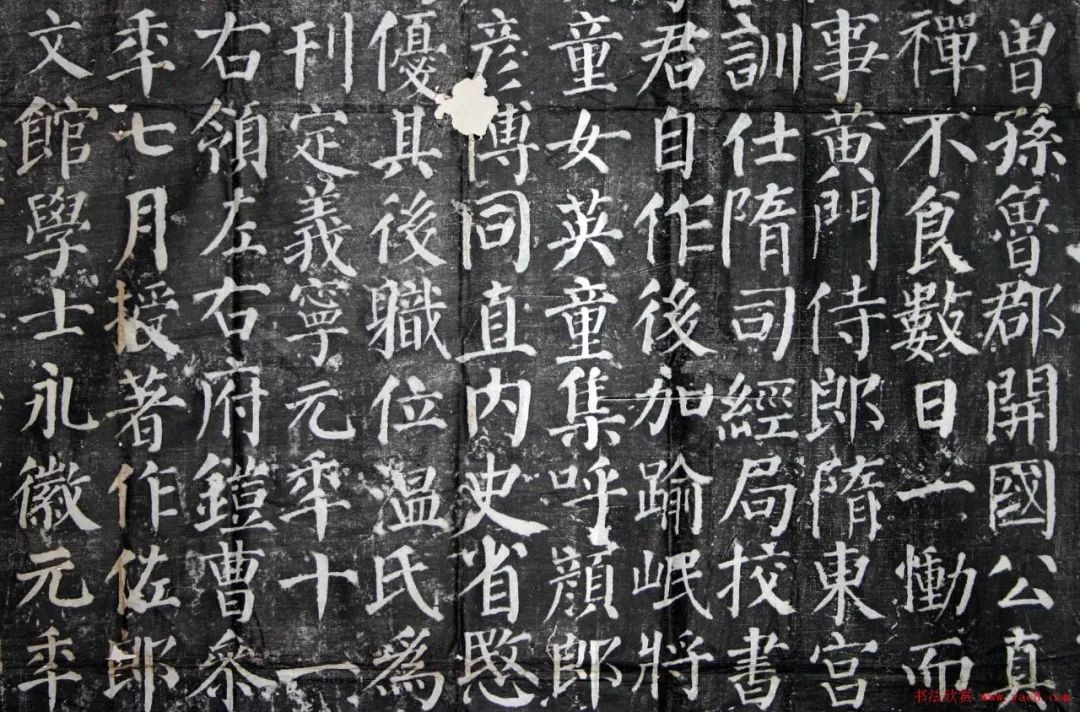 曾孫魯郡開國公真
禪不食數日一慟而
事黄門侍郎隋東宮
訓仕隋司經局挍書
君自作後加踰岷將
童女英童集呼顏郎
彦博同直内史省愍
優其後職位温氏為
刊定義寧元年十一
右領左右府鎧曹叅
年七月授著作佐郎
文館學士永徽元年
书法欣赏 www.yac8.com